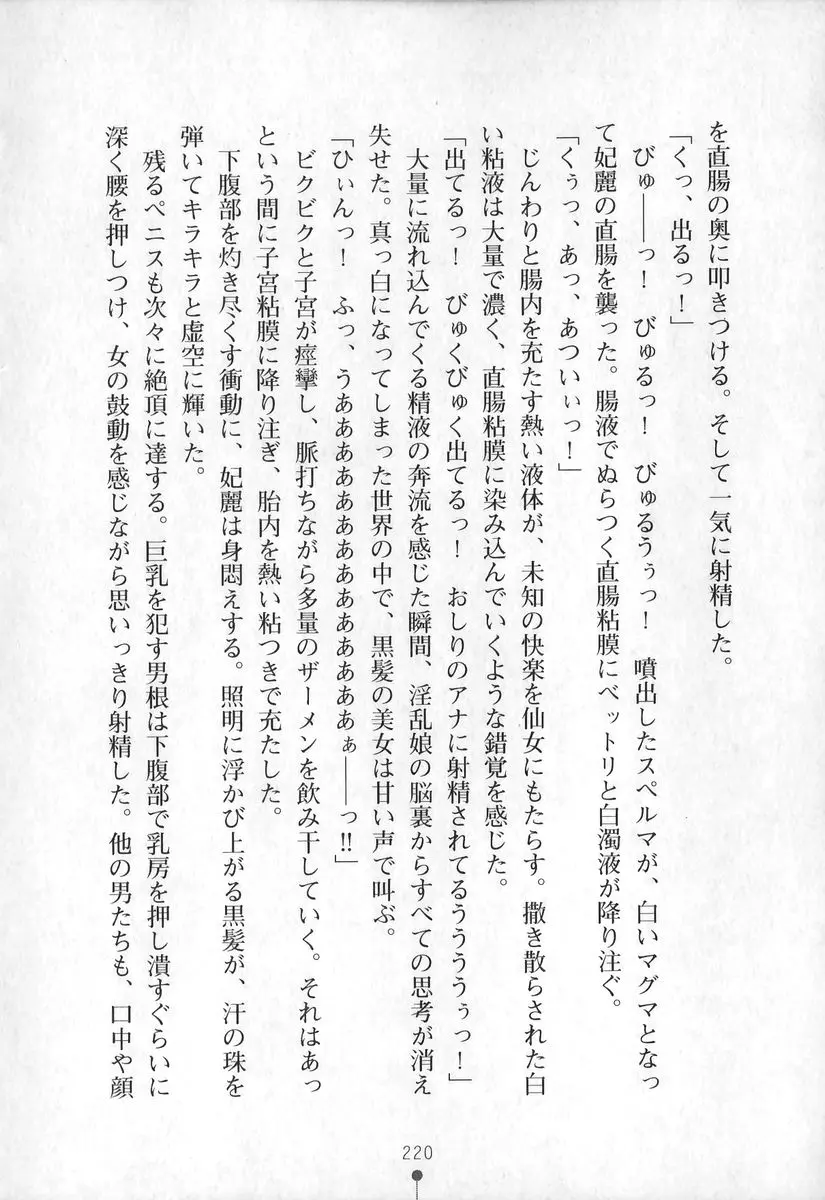 を直腸の奥に叩きつける。そして一気に射精した。
「くっ、出るっ!」
びゅ――っ! びゅるっ! びゅるうぅっ! 噴出したスペルマが、白いマグマとなっ
て妃麗の直腸を襲った。腸液でぬらつく直腸粘膜にベットリと白濁液が降り注ぐ。
「くぅっ、あっ、あついぃっ!」
じんわりと腸内を充たす熱い液体が、未知の快楽を仙女にもたらす。撒き散らされた白
い粘液は大量で濃く、直腸粘膜に染み込んでいくような錯覚を感じた。
「出てるっ! びゅくびゅく出てるっ! おしりのアナに射精されてるうううぅっ!」
大量に流れ込んでくる精液の奔流を感じた瞬間、淫乱娘の脳裏からすべての思考が消え
失せた。真っ白になってしまった世界の中で、黒髪の美女は甘い声で叫ぶ。
「ひぃんっ! ふっ、うああああああああああああああぁ――っ!!」
ビクビクと子宮が痙攣し、脈打ちながら多量のザーメンを飲み干していく。それはあっ
という間に子宮粘膜に降り注ぎ、胎内を熱い粘つきで充たした。
下腹部を灼き尽くす衝動に、妃麗は身悶えする。照明に浮かび上がる黒髪が、汗の珠を
弾いてキラキラと虚空に輝いた。
残るペニスも次々に絶頂に達する。巨乳を犯す男根は下腹部で乳房を押し潰すぐらいに
深く腰を押しつけ、女の鼓動を感じながら思いっきり射精した。他の男たちも、口中や顔
220